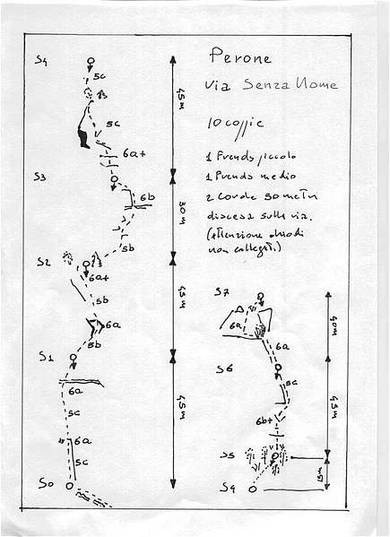 Perone
via Senza Nome
10 coppie
1 Friends piccolo
1 Friends medio
2 Corde 50 metri
discesa sulla via.
(attenzione chiodi
non collegati.)
S4
5c
5c
6a+
45m
S3
6b
5b
30m
S2
6a+
5b
6a
5b
45m
S1
6a
5c
6a
5c
45m
S0
S7
6a
40m
S6
5c
6b+
45m
S5
S4